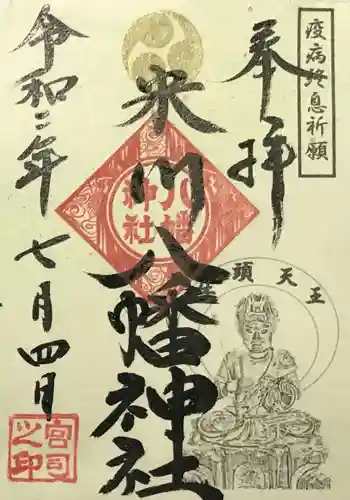 疫病終息祈願
奉拝
米川八幡神社
八幡
神社
令和二年
七月四日
牛頭天王
宮司
之印